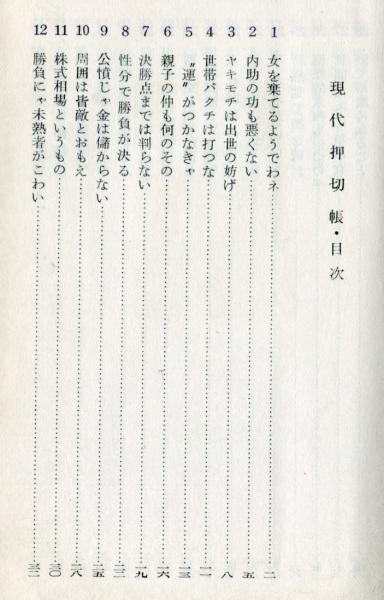 現代押切帳・目次
1 女を棄てるようでわネ……二
2 内助の功も悪くない……五
3 ヤキモチは出世の妨げ……八
4 世帯バクチは打つな……一一
5 〝運〟がつかなきゃ……一三
6 親子の仲も何のその……一六
7 決勝点までは判らない……一九
8 性分で勝負が決る……二二
9 公憤じゃ金は儲からない……二五
10 周囲は皆敵とおもえ……二八
11 株式相場というもの……三〇
12 勝負にゃ未熟者がこわい……三二